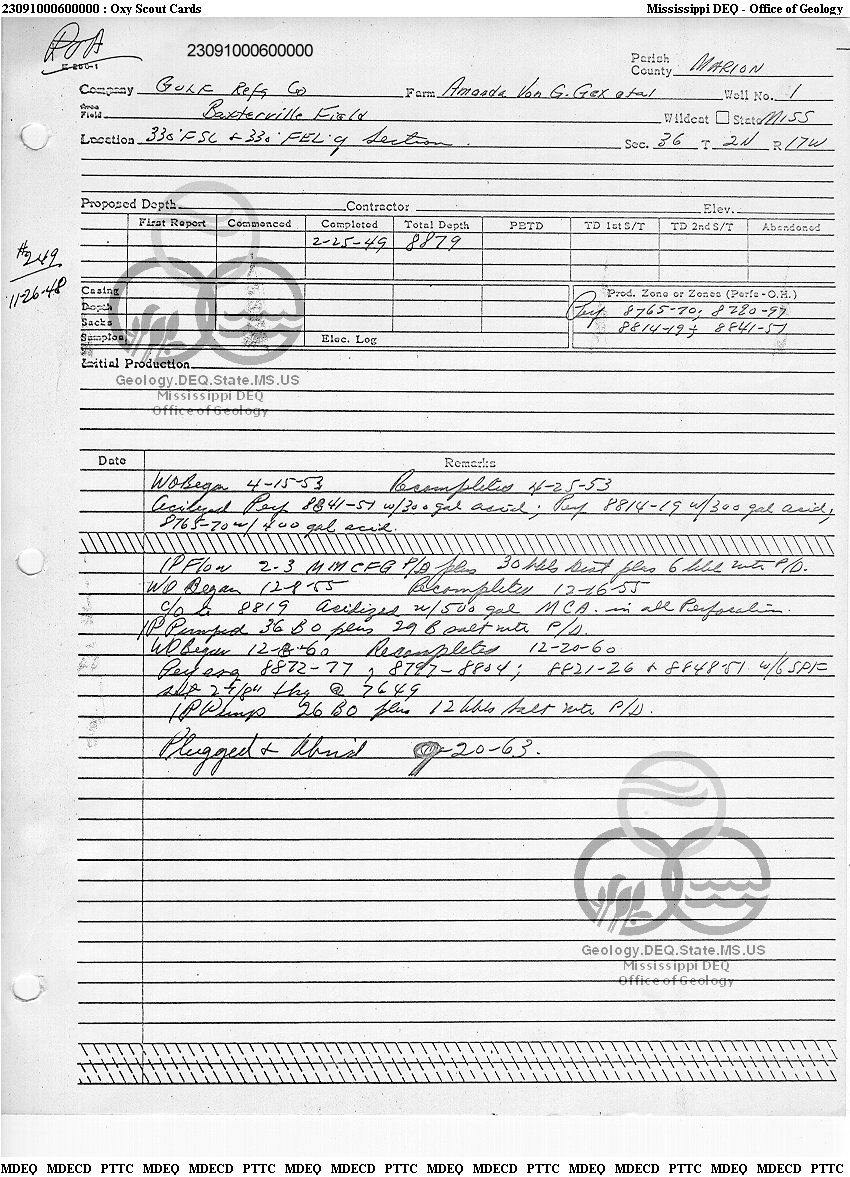 23091000600000 : Oxy Scout Cards Mississippi DEQ - Office of Geology
P&A
23091000600000
Parish County MARION
Company Gulf Refg Co Farm Amanda Von G. Gex et al Well No. 1
Area Field Baxterville Field Wildcat State Miss
Location 330' FSL & 330' FEL of Section. Sec. 36 T 2N R 17W
Proposed Depth Contractor Elev.
First Report Commenced Completed Total Depth PBTD TD 1st S/T TD 2nd S/T Abandoned
2-25-49 8879
#249
11-26-48
Casing Prod. Zone or Zones (Perfs-O.H.)
Depth Perf 8765-70,
Sacks 8814-19 & 8841-51
Samples Elec. Log
Initial Production
Geology.DEQ.State.MS.US
Mississippi DEQ
Office of Geology
Date Remarks
WO Began 4-15-53 Recompleted 4-25-53
Acidized Perf 8841-51 w/300 gal acid; Perf 8814-19 w/300 gal acid;
8765-70 w/400 gal acid.
IP Flow 2-3 MMCFG P/D plus 30 bbls dist plus 6 bbl wtr P/D.
WO Began 12-8-55 Recompleted 12-16-55
C/O to 8819 Acidized w/500 gal MCA. in all Perforation.
IP Pumped 36 BO plus 29 B salt wtr P/D.
WO Began 12-8-60 Recompleted 12-20-60
8872-77; 8797-8804; 8821-26 & 8848-51 w/6 SPF
set 2 7/8" tbg @ 7649
IP Pump 26 BO plus 12 bbls salt wtr P/D.
Plugged & Abnd -20-63.
Geology.DEQ.State.MS.US
Mississippi DEQ
Office of Geology
MDEQ MDECD PTTC MDEQ MDECD PTTC MDEQ MDECD PTTC MDEQ MDECD PTTC MDEQ MDECD PTTC MDEQ MDECD PTTC